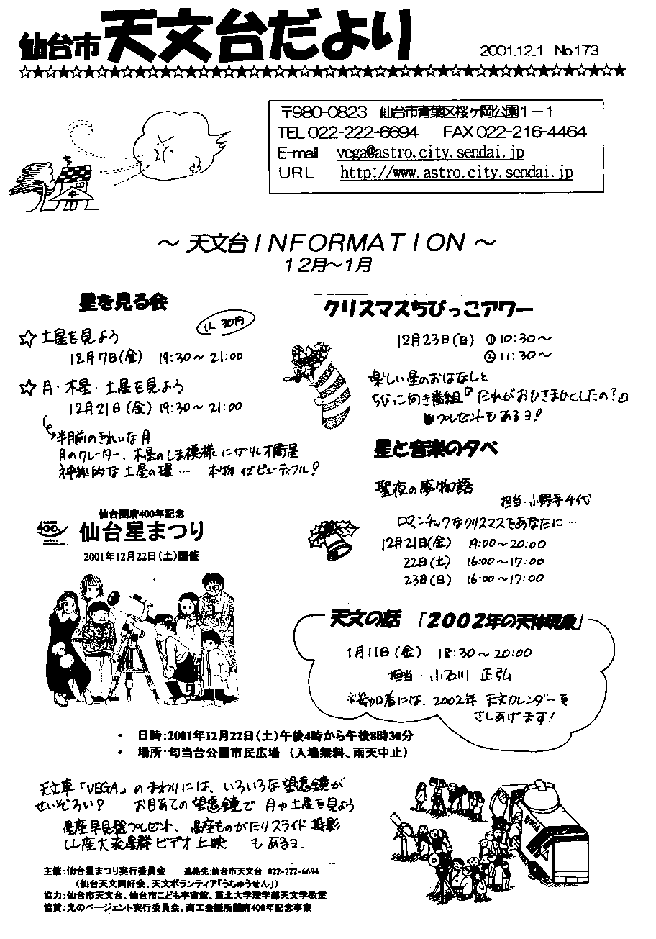 仙台市 天文台だより
2001.12.1 No173
〒980-0823 仙台市青葉区桜ヶ岡公園1-1
TEL 022-222-6694 FAX 022-216-4464
E-mail vega@astro.city.sendai.jp
URL http://www.astro.city.sendai.jp
～ 天文台INFORMATION ～
12月～1月
星を見る会
☆ 土星を見よう
12月7日(金) 19:30～21:00
☆ 月・木星・土星を見よう
12月21日(金) 19:30～21:00
半月前のきれいな月
月のクレーター、木星のしま模様にガリレオ衛星
神秘的な土星の環… 本物はビューティフル!
クリスマスちびっこアワー
12月23日(日) ①10:30～
②11:30～
楽しい星のおはなしと
ちびっこ向き番組『だれがおひさまおとしたの?』
プレゼントもあるヨ!
星と音楽の夕べ
聖夜の夢物語
担当・小野寺千代
ロマンチックなクリスマスをあなたに…
12月21日(金) 19:00～20:00
22日(土) 16:00～17:00
23日(日) 16:00～17:00
仙台開府400年記念
400
仙台星まつり
2001年12月22日(土)開催
天文の話 「2002年の天体現象」
1月11日(金) 18:30～20:00
担当・小石川 正弘
参加者には、2002年 天文カレンダーを
さしあげます!
・ 日時:2001年12月22日(土)午後4時から午後8時30分
・ 場所:勾当台公園市民広場 (入場無料、雨天中止)
天文車「VEGA」のまわりには、いろいろな望遠鏡が
せいぞろい? お目あての望遠鏡で 月や土星を見よう
星座早見盤プレゼント、星座ものがたりスライド投影
しし座大流星群ビデオ上映 もあるヨ
主催:仙台星まつり実行委員会 連絡先:仙台市天文台 022-222-6694
(仙台天文同好会、天文ボランティア「うちゅうせん」)
協力:仙台市天文台、仙台市こども宇宙館、東北大学理学部天文学教室
協賛:光のページェント実行委員会、商工会議所開府400年記念事業